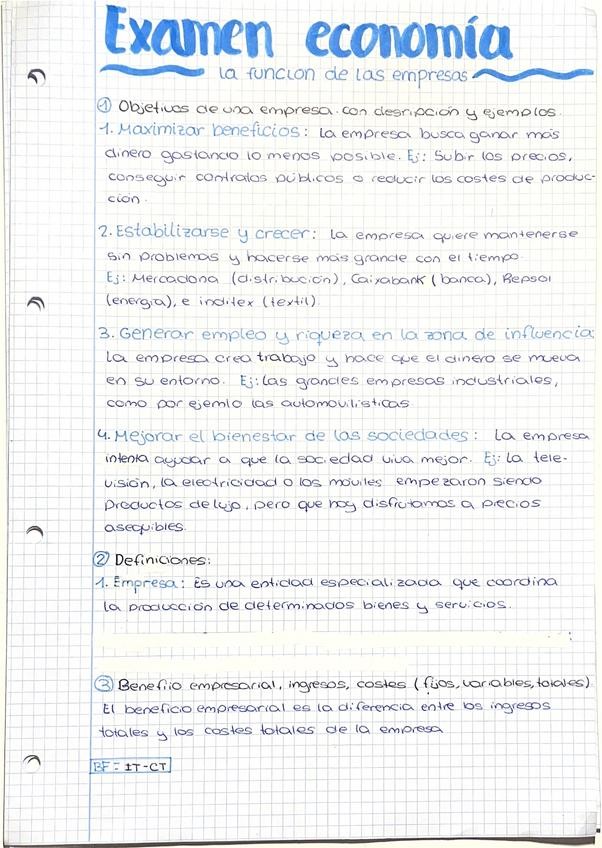 Examen economía
la funcion de las empresas
① Objetivos de una empresa con desripción y ejemplos.
1. Maximizar beneficios: la empresa busca ganar más
dinero gastando lo menos posible. Ej: Subir los precios,
conseguir contratos públicos o reducir los costes de produc-
ción.
2. Estabilizarse y crecer: la empresa quiere mantenerse
sin problemas y hacerse más grande con el tiempo.
Ej: Mercadona (distribución), Caixabank (banca), Repsol
(energía), e inditex (textil)
3. Generar empleo y riqueza en la zona de influencia:
La empresa crea trabajo y hace que el dinero se mueva
en su entorno. Ej: las grandes empresas industriales,
como por ejemlo las automovilísticas.
4. Mejorar el bienestar de las sociedades: La empresa
intenta ayudar a que la sociedad viva mejor. Ej: La tele-
visión, la electricidad o los móviles empezaron siendo
productos de lujo, pero que hoy disfrutamos a precios
asequibles.
② Definiciones:
1. Empresa: Es una entidad especializada que coordina
la producción de determinados bienes y servicios.
③ Benefiio empresarial, ingresos, costes (fijos, variables, totales)
El beneficio empresarial es la diferencia entre los ingresos
totales y los costes totales de la empresa
BF = IT-CT